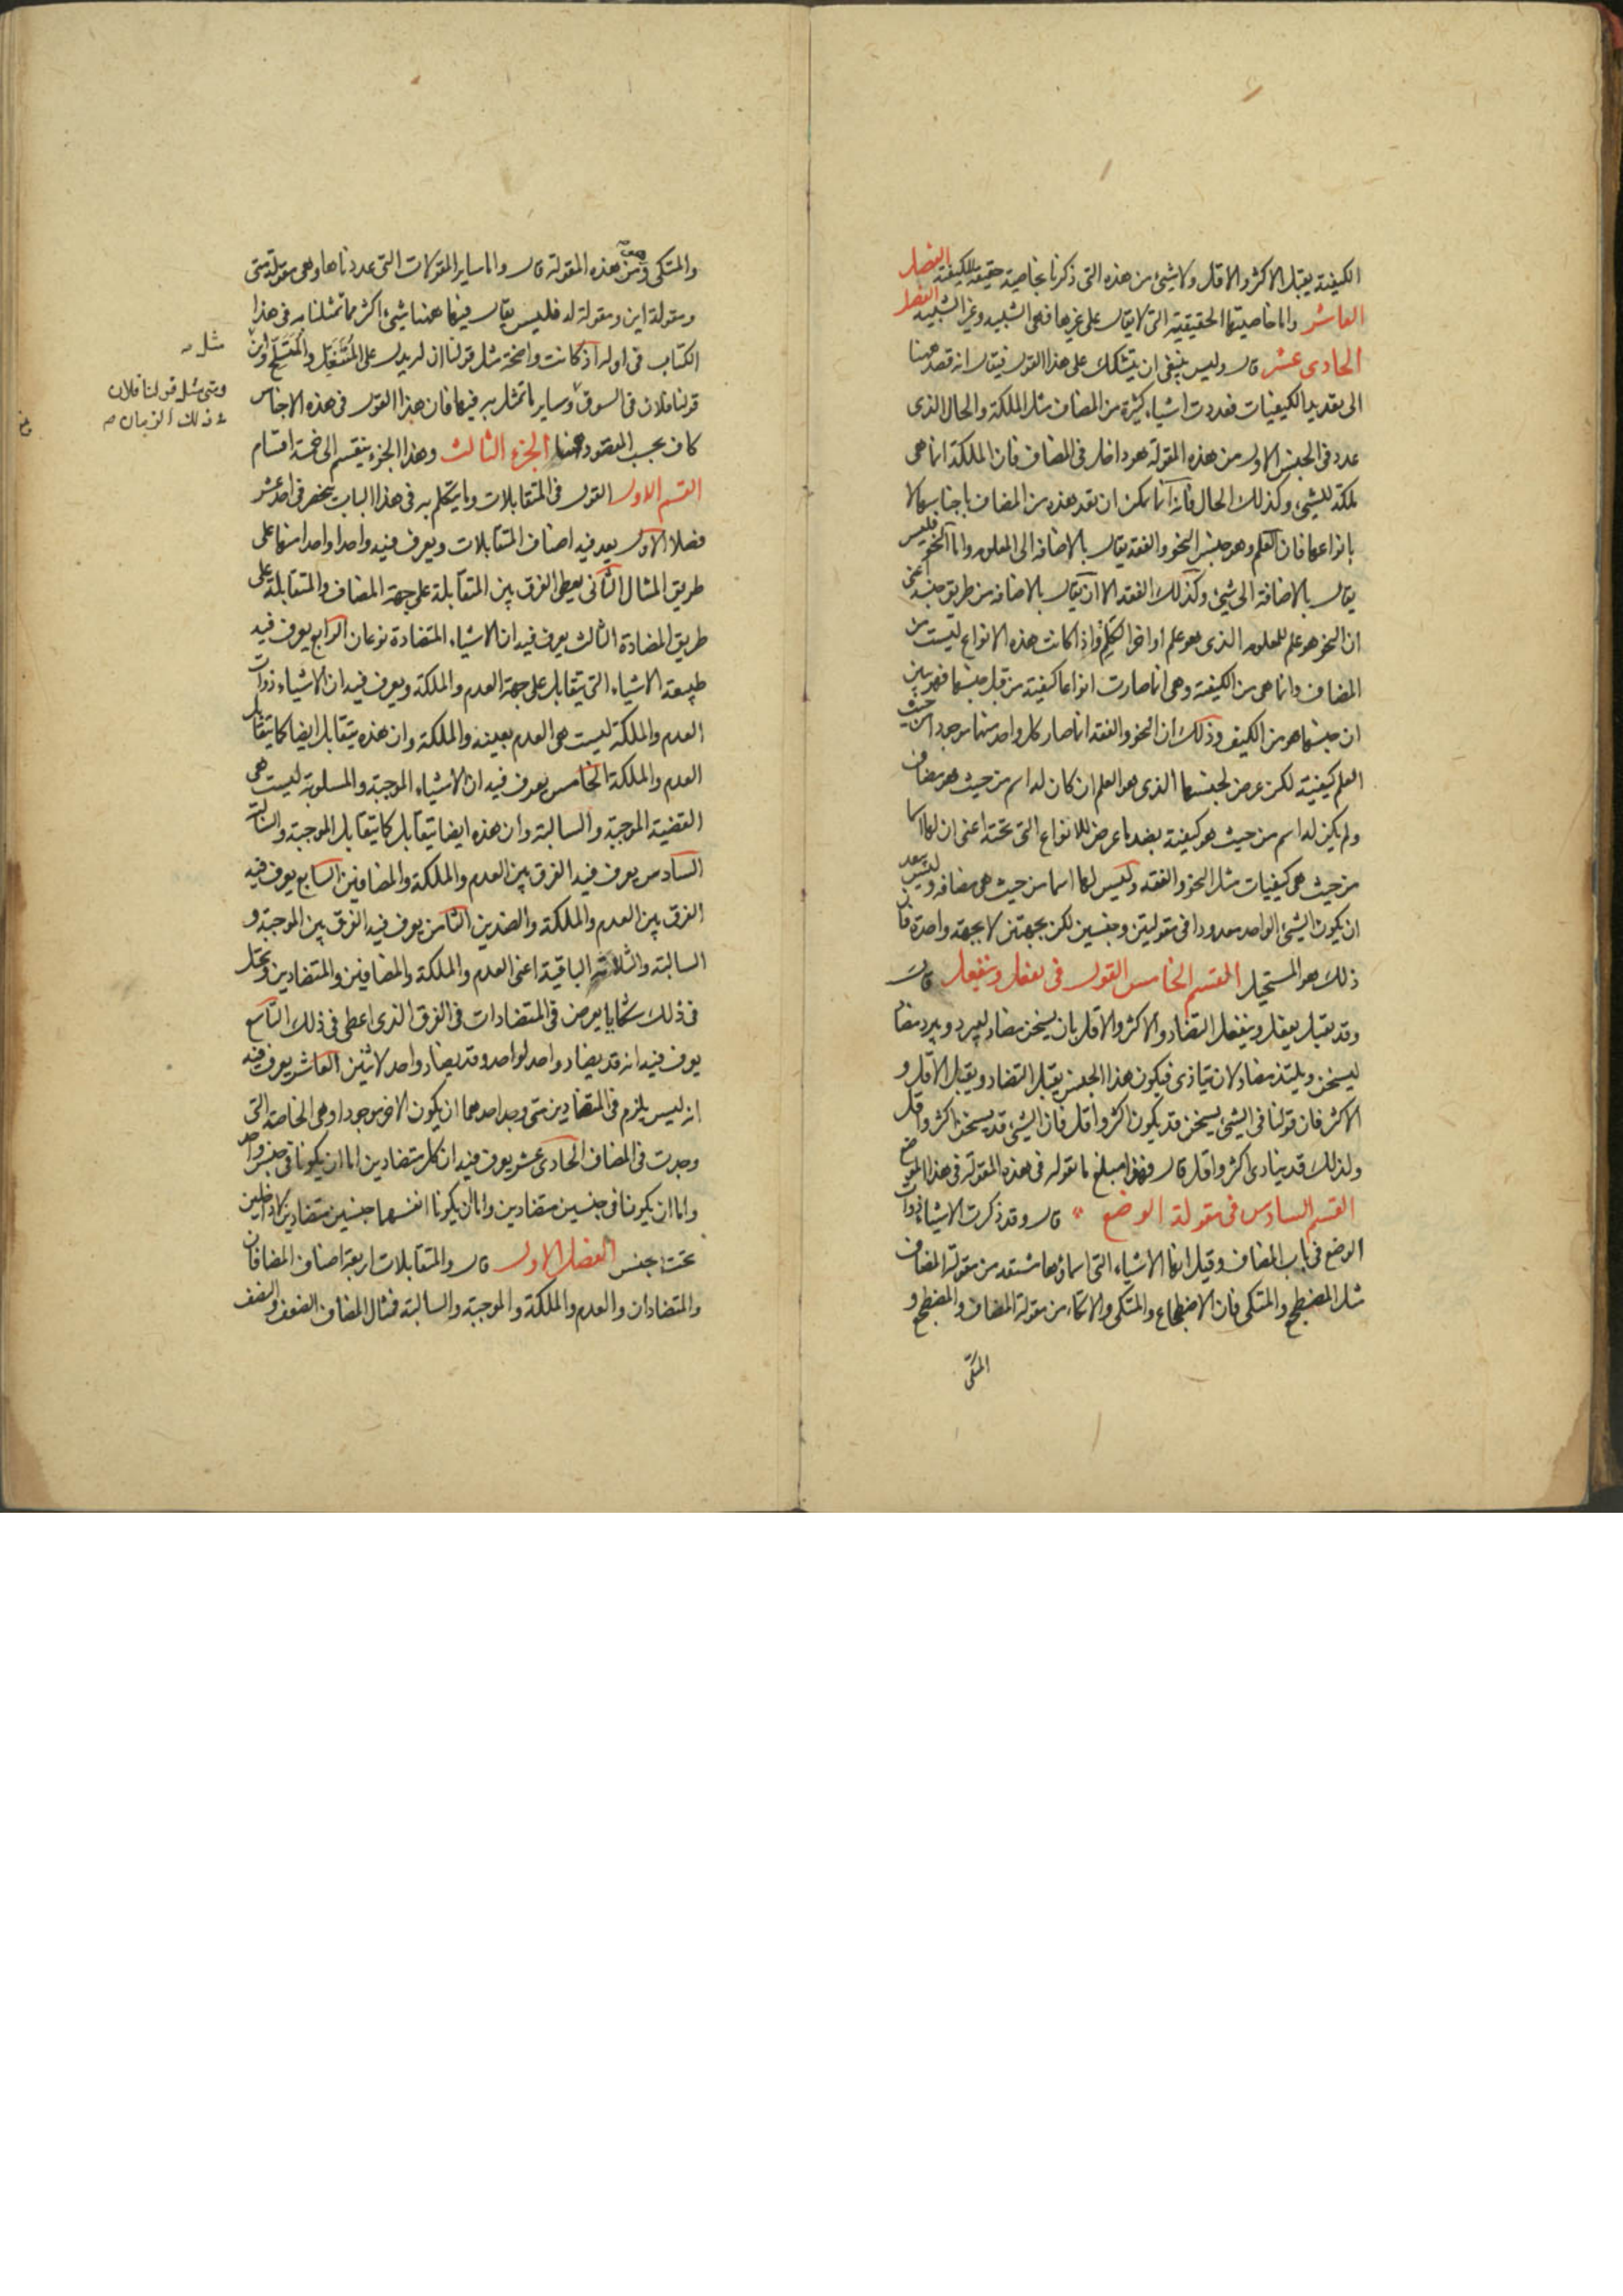 الكيفية يقبل الاكثر والاقل ولا شيئ من هذه التى ذكرنا بخاصية حقيقية للكيفية الفصل
العاشر واما خاصيتها الحقيقية التى لا يقال على غيرها فهى الشبيه وغير الشبيه الفصل
الحادى عشر قال وليس ينبغى ان يتشكك على هذا القول فيقال انه قصد ههنا
الى تعديد الكيفيات فعددت اشياء كثيرة من المضاف مثل الملكة والحال الذى
عدد فى الجنس الاول من هذه المقولة هو داخل فى المضاف فان الملكة انما هى
ملكة للشيئ وكذلك الحال فانه انما يمكن ان يعد هذه من المضاف باجناسها لا
بانواعها فان العلم وهو جنس النحو والفقه يقال بالاضافة الى المعلوم واما النحو فليس
يقال بالاضافة الى شيئ وكذلك الفقه الا ان يقال بالاضافة من طريق جنسه اعنى
ان النحو هو علم للمعلوم الذى هو علم اواخر الكلم واذا كانت هذه الانواع ليست من
المضاف وانما هى من الكيفية وهى انما صارت انواعا كيفية من قبل جنسها فهو بين
ان جنسها هو من الكيف وذلك ان النحو والفقه انما صار كل واحد منهما موجودا من حيث
العلم كيفية لكن عرض لجنسهما الذى هو العلم ان كان له اسم من حيث هو مضاف
ولم يكن له اسم من حيث هو كيفية بضد ما عرض للانواع التى تحته اعنى ان لها اسما
من حيث هى كيفيات مثل النحو والفقه وليس لها اسما من حيث هى مضافة وليس يبعد
ان يكون الشيئ الواحد معدودا فى مقولتين وجنسين لكن بجهتين لا بجهة واحدة فان
ذلك هو المستحيل القسم الخامس القول فى يفعل وينفعل قال
وقد يقبل يفعل وينفعل التضاد والاكثر والاقل بان يسخن مضاد ليبرد ويبرد مضاد
ليسخن ويلتذ مضاد لان يتاذى فيكون هذا الجنس يقبل التضاد ويقبل الاقل و
الاكثر فان قولنا فى الشيئ يسخن قد يكون اكثر واقل فان الشيئ قد يسخن اكثر واقل
ولذلك قد يتاذى اكثر واقل قال فهذا مبلغ ما نقوله فى هذه المقولة فى هذا الموضع
القسم السادس فى مقولة الوضع قال وقد ذكرت الاشياء ذوات
الوضع فى باب المضاف وقيل انها الاشياء التى اسماؤها مشتقة من مقولة المضاف
مثل المضطجع والمتكى فان الاضطجاع والمتكى والاتكاء من مقولة المضاف والمضطجع و
المتكى
والمتكى من هذه المقولة قال واما ساير المقولات التى عددناها وهى مقولة متى
ومقولة اين ومقولة له فليس يقال فيها ههنا شيئ اكثر مما تمثلنا به فى هذا
الكتاب فى اوله اذ كانت واضحة مثل قولنا ان له يدل على المنتعل والمتسلح واين
مثل
قولنا فلان فى السوق وساير ما تمثل به فيها فان هذا القول فى هذه الاجناس
ومتى مثل قولنا فلان
فى ذلك الزمان
كاف بحسب المقصود ههنا الجزء الثالث وهذا الجزء ينقسم الى خمسة اقسام
القسم الاول القول فى المتقابلات وما يتكلم به فى هذا الباب ينحصر فى احد عشر
فصلا الاول يعدد فيه اصناف المتقابلات ويعرف فيه واحدا واحدا منها على
طريق المثال الثانى يعطى الفرق بين المتقابلة على جهة المضاف والمتقابلة على
طريق المضادة الثالث يعرف فيه ان الاشياء المتضادة نوعان الرابع يعرف فيه
طبيعة الاشياء التى تتقابل على جهة العدم والملكة ويعرف فيه ان الاشياء ذوات
العدم والملكة ليست هى العدم بعينه والملكة وان هذه يتقابل ايضا كما يتقابل
العدم والملكة الخامس يعرف فيه ان الاشياء الموجبة والمسلوبة ليست هى
القضية الموجبة والسالبة وان هذه ايضا يتقابل كما يتقابل الموجبة والسالبة
السادس يعرف فيه الفرق بين العدم والملكة والمضافين السابع يعرف فيه
الفرق بين العدم والملكة والضدين الثامن يعرف فيه الفرق بين الموجبة و
السالبة والثلاثة الباقية اعنى العدم والملكة والمضافين والمتضادين ويحل
فى ذلك شكا ما يعرض فى المتضادات فى الفرق الذى اعطى فى ذلك التاسع
يعرف فيه انه قد يضاد واحد لواحد وقد يضاد واحد لاثنين العاشر يعرف فيه
انه ليس يلزم فى المتضادين متى وجد احدهما ان يكون الاخر موجودا وهى الخاصة التى
وجدت فى المضاف الحادى عشر يعرف فيه ان كل متضادين اما ان يكونا فى جنس واحد
واما ان يكونا فى جنسين متضادين واما ان يكونا انفسهما جنسين متضادين لا داخلين
تحت جنس الفصل الاول قال والمتقابلات اربعة اصناف المضافان
والمتضادان والعدم والملكة والموجبة والسالبة فمثال المضاف الضعف والنصف